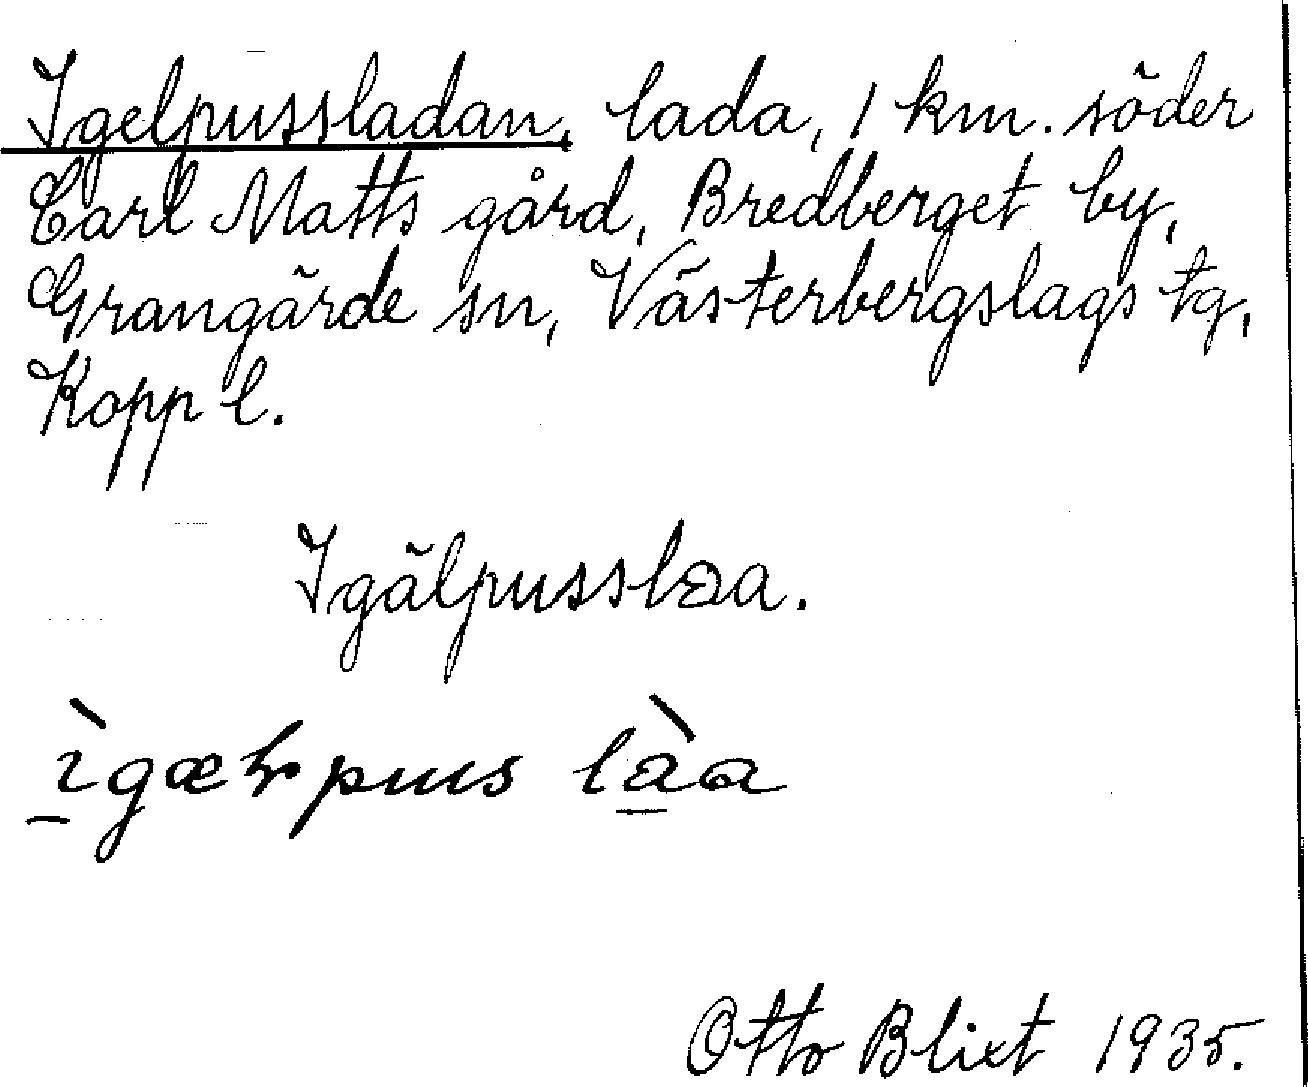 Igelpussladan, lada, 1 km. söder
Carl Matts gård, Bredberget by,
Grangärde sn, Västerbergslags tg,
Kopp l.
Igälpusslaa.
ìgælpus làa
Otto Blixt 1935.